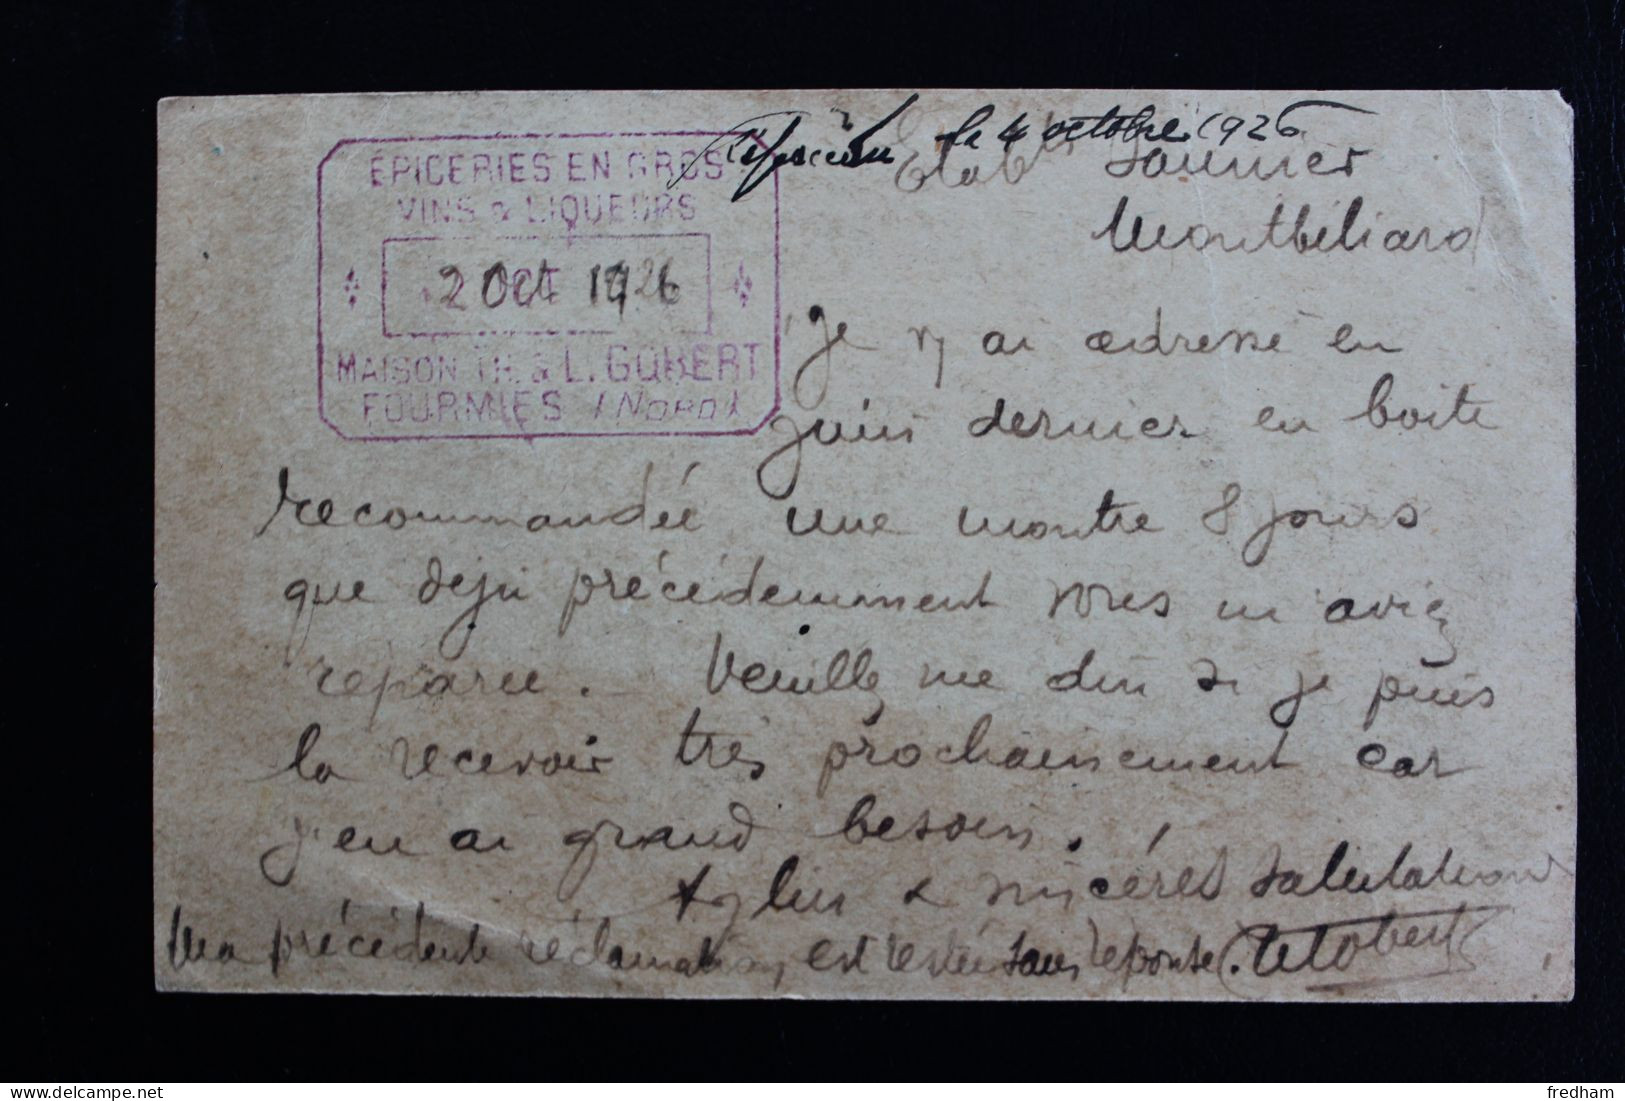 le 4 octobre 1926
ÉPICERIES EN GROS
VINS & LIQUEURS
2 Oct 1926
MAISON TH. & L. GOBERT
FOURMIES (NORD)
Etab Saunier
Montbéliard
Je v ai adressé en
juin dernier en boite
recommandée une montre 8 jours
que deja précédemment vous m aviez
réparée. Veuillez me dire si je puis
la recevoir très prochainement car
j'en ai grand besoin.
& sincères salutations
Ma précédente réclamation est restée sans reponse.
fredham
delcampe.net